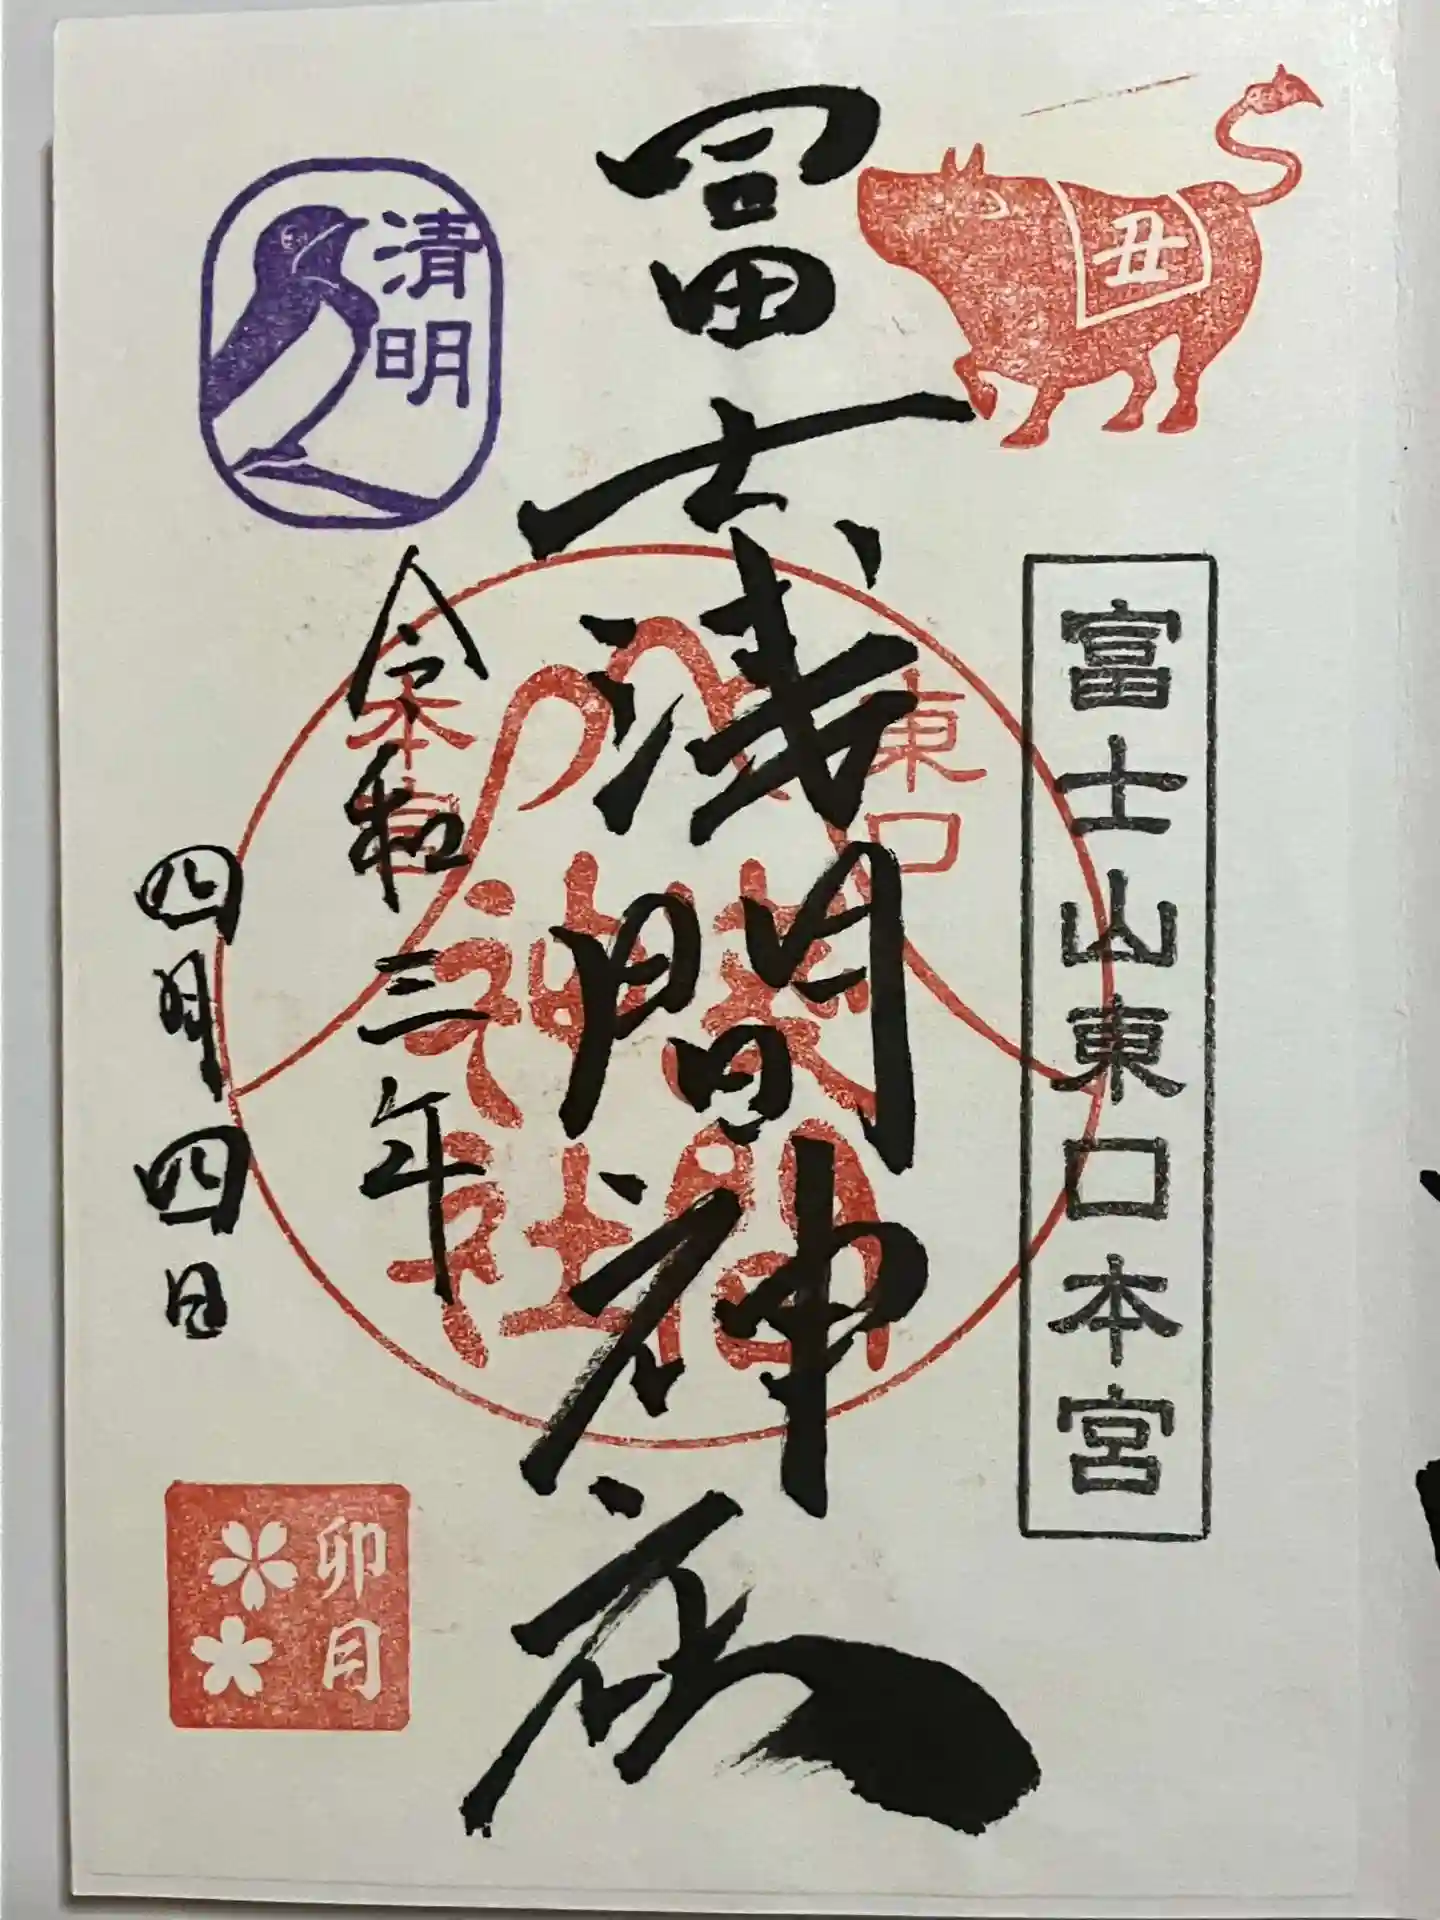 丑
富士山東口本宮
冨士浅間神社
東口
本宮
浅間
神社
清明
令和三年
四月四日
卯月